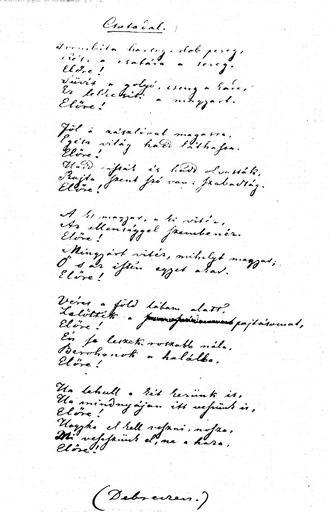 Csatadal.
Trombita harsog, dob pereg,
Kész a csatára a sereg.
Előre!
Süvít a golyó, cseng a kard,
Ez lelkesíti a magyart.
Előre!
Föl a zászlóval magasra,
Egész világ hadd láthassa.
Előre!
Hadd lássák és hadd olvassák,
Rajta szent szó van: szabadság.
Előre!
A ki magyar, a ki vitéz,
Az ellenséggel szembenéz.
Előre!
Mingyárt vitéz, mihelyt magyar,
Ő s az isten egyet akar.
Előre!
Véres a föld lábam alatt,
Lelőtték a pajtásomat,
Előre!
Én se leszek rosszabb nála,
Berohanok a halálba,
Előre!
Ha lehull a két kezünk is,
Ha mindnyájan itt veszünk is,
Előre!
Hogyha el kell veszni, nosza,
Mi vesszünk el, ne a haza,
Előre!
(Debreczen.)